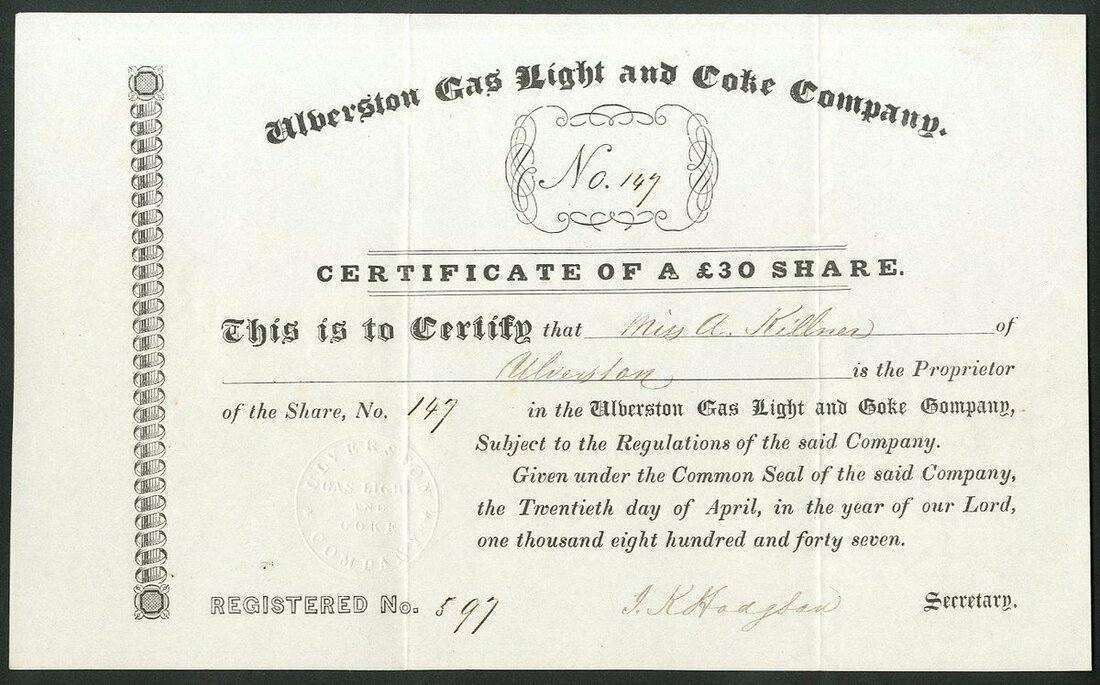 Ulverston Gas Light and Coke Company.
No. 147
CERTIFICATE OF A £30 SHARE.
This is to Certify that Miss A. Killner of
Ulverston is the Proprietor
of the Share, No. 147 in the Ulverston Gas Light and Coke Company,
Subject to the Regulations of the said Company.
Given under the Common Seal of the said Company,
the Twentieth day of April, in the year of our Lord,
one thousand eight hundred and forty seven.
ULVERSTON
GAS LIGHT
AND
COKE
COMPANY
REGISTERED No. 597
J. K Hodgson Secretary.